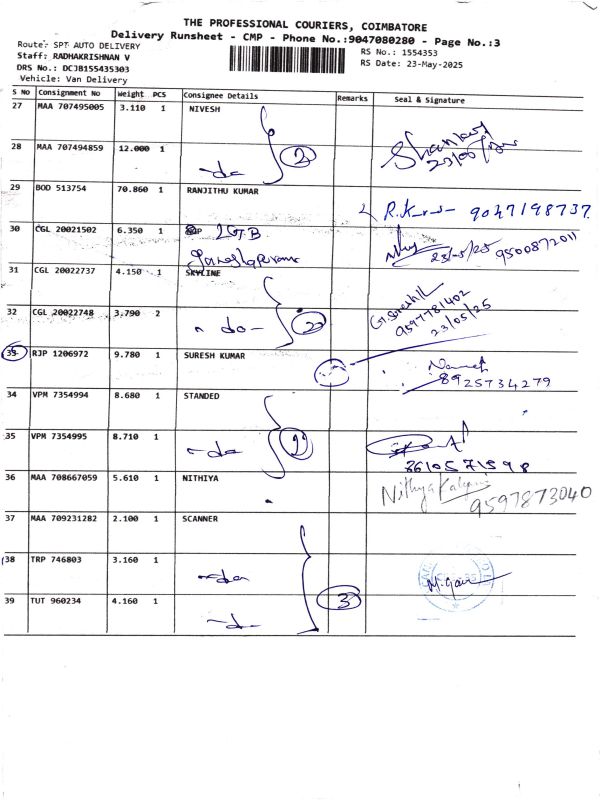 THE PROFESSIONAL COURIERS, COIMBATORE
Delivery Runsheet - CMP - Phone No.:9047080280 - Page No.:3
Route: SPT AUTO DELIVERY
Staff: RADHAKRISHNAN V
DRS No.: DCJB155435303
Vehicle: Van Delivery
RS No.: 1554353
RS Date: 23-May-2025
S No Consignment No Weight PCS Consignee Details Remarks Seal & Signature
27 MAA 707495005 3.110 1 NIVESH
28 MAA 707494859 12.000 1 -do- 2
23/05/
29 BOD 513754 70.860 1 RANJITHU KUMAR
9047198737
30 CGL 20021502 6.350 1
23/05/25 9500872011
31 CGL 20022737 4.150 1 SKYLINE
32 CGL 20022748 3.790 2 -do- 2
G.Sureshk
9597781402
23/05/25
33 RJP 1206972 9.780 1 SURESH KUMAR
8925734279
34 VPM 7354994 8.680 1 STANDED
35 VPM 7354995 8.710 1 -do-
8610571598
36 MAA 708667059 5.610 1 NITHIYA
Nithya Kalyani
9597873040
37 MAA 709231282 2.100 1 SCANNER
38 TRP 746803 3.160 1 -do-
39 TUT 960234 4.160 1 -do- 3